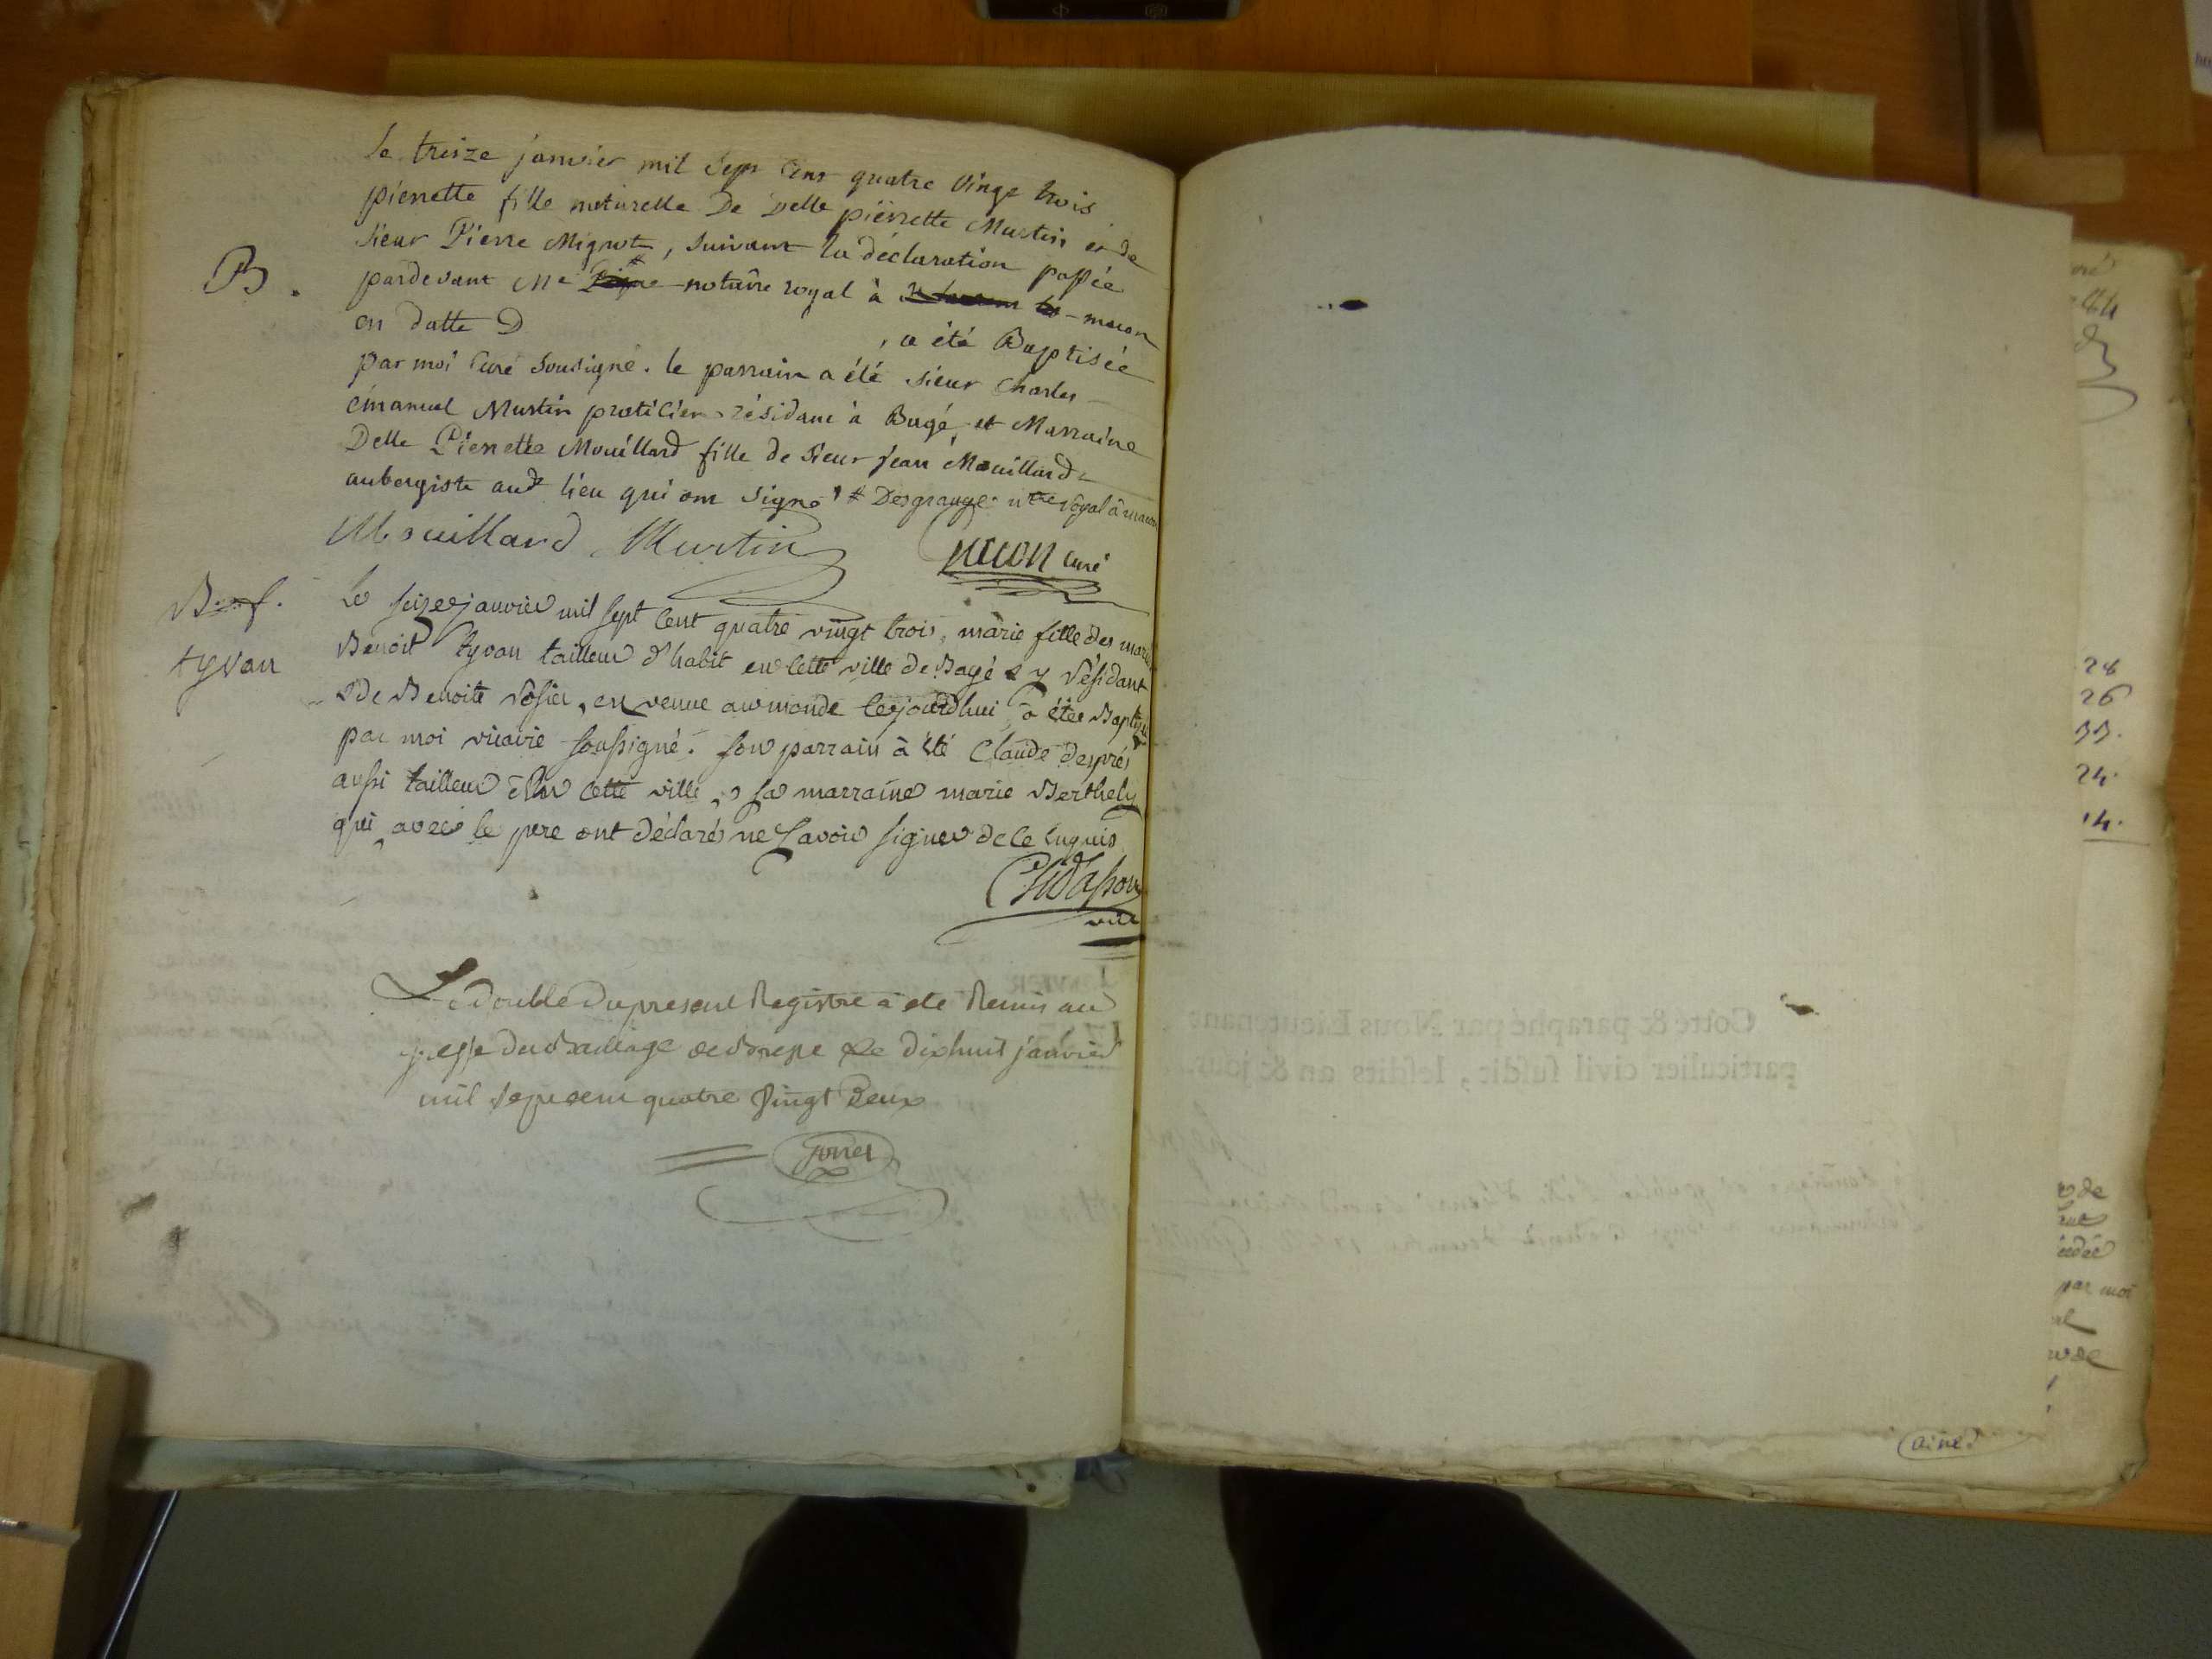 le treize janvier mil sept cens quatre vingt trois
pierrette fille naturelle De Delle pierrette Martin et de
sieur Pierre Mignot, suivant la déclaration passée
B. pardevant Me notaire royal à macon
en datte D , a été Baptisée
par moi Curé soussigné. le parrain a été sieur Charles
émanuel Martin praticien résidant à Bagé, et Marraine
Delle Pierrette Mouillard fille de sieur jean Mouillard
aubergiste audt lieu qui ont signé # Desgranges nre royal à macon
Mouillard Martin curé
B. f. Le seize janvier mil sept cent quatre vingt trois, marie fille des mariés
tyvan Benoit tyvan tailleur d'habit en cette ville de Bagé & y résidant
& de Benoite rosier, en venue au monde cejourd'hui à été Baptisée
par moi vicaire soussigné. son parrain à été Claude després
aussi tailleur en cette ville, & sa marraine marie Berthely
qui avec le pere ont déclarés ne savoir signer de ce enquis
vic
Le double du present Registre a eté Remis au
greffe du Bailliage de Bresse Le dixhuit janvier
mil sept cent quatre vingt Deux
28
26
33.
24.
14.
Cotté & paraphé par Nous Lieutenant
particulier civil susdit, lesdits an & jour.
par moi
(aine)